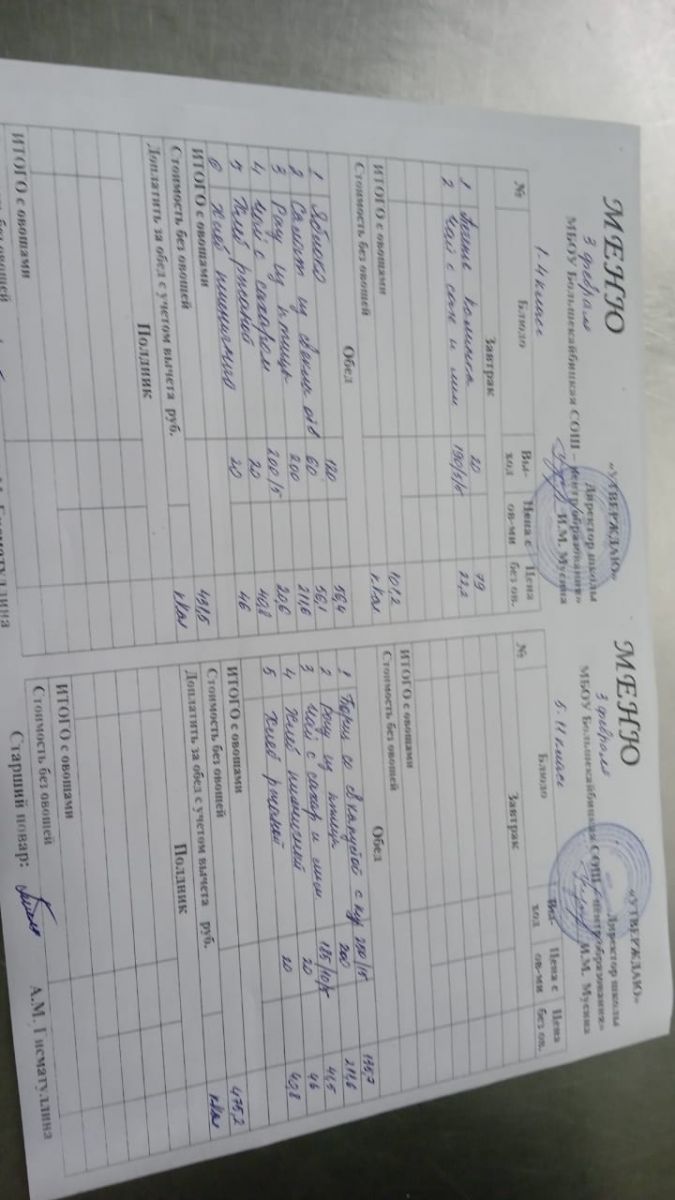 МЕНЮ
«УТВЕРЖДАЮ»
3 февраля
Директор школы
МБОУ Большекайбицкая СОШ – центр образования» И.М. Мусина
1-4 класс
№ Блюдо Вы-ход Цена с ов-ми Цена без ов.
Завтрак
1 20 79
2 Чай с сах и лим 190/5/5 22,2
ИТОГО с овощами 101,2
Стоимость без овощей ккал
Обед
1 Яблоко 120 56,4
2 Салат из 60 56,1
3 Рагу из птицы 200 211,6
4 Чай с сахаром 200/5 20,6
5 Хлеб ржаной 20 40,8
6 Хлеб пшеничного 20 46
ИТОГО с овощами 431,5
Стоимость без овощей ккал
Доплатить за обед с учетом вычета руб.
Полдник
ИТОГО с овощами
МЕНЮ
«УТВЕРЖДАЮ»
3 февраля
Директор школы
МБОУ Большекайбицкая СОШ – центр образования» И.М. Мусина
5-11 класс
№ Блюдо Вы-ход Цена с ов-ми Цена без ов.
Завтрак
ИТОГО с овощами
Стоимость без овощей
Обед
1 Борщ со св капустой с кур 250/15 135,7
2 Рагу из птицы 200 211,6
3 Чай с сахар и лим 185/10/5 41,5
4 Хлеб пшеничный 20 46
5 Хлеб ржаной 20 40,8
ИТОГО с овощами 475,2
Стоимость без овощей ккал
Доплатить за обед с учетом вычета руб.
Полдник
ИТОГО с овощами
Стоимость без овощей
Старший повар: А.М. Гисматуллина